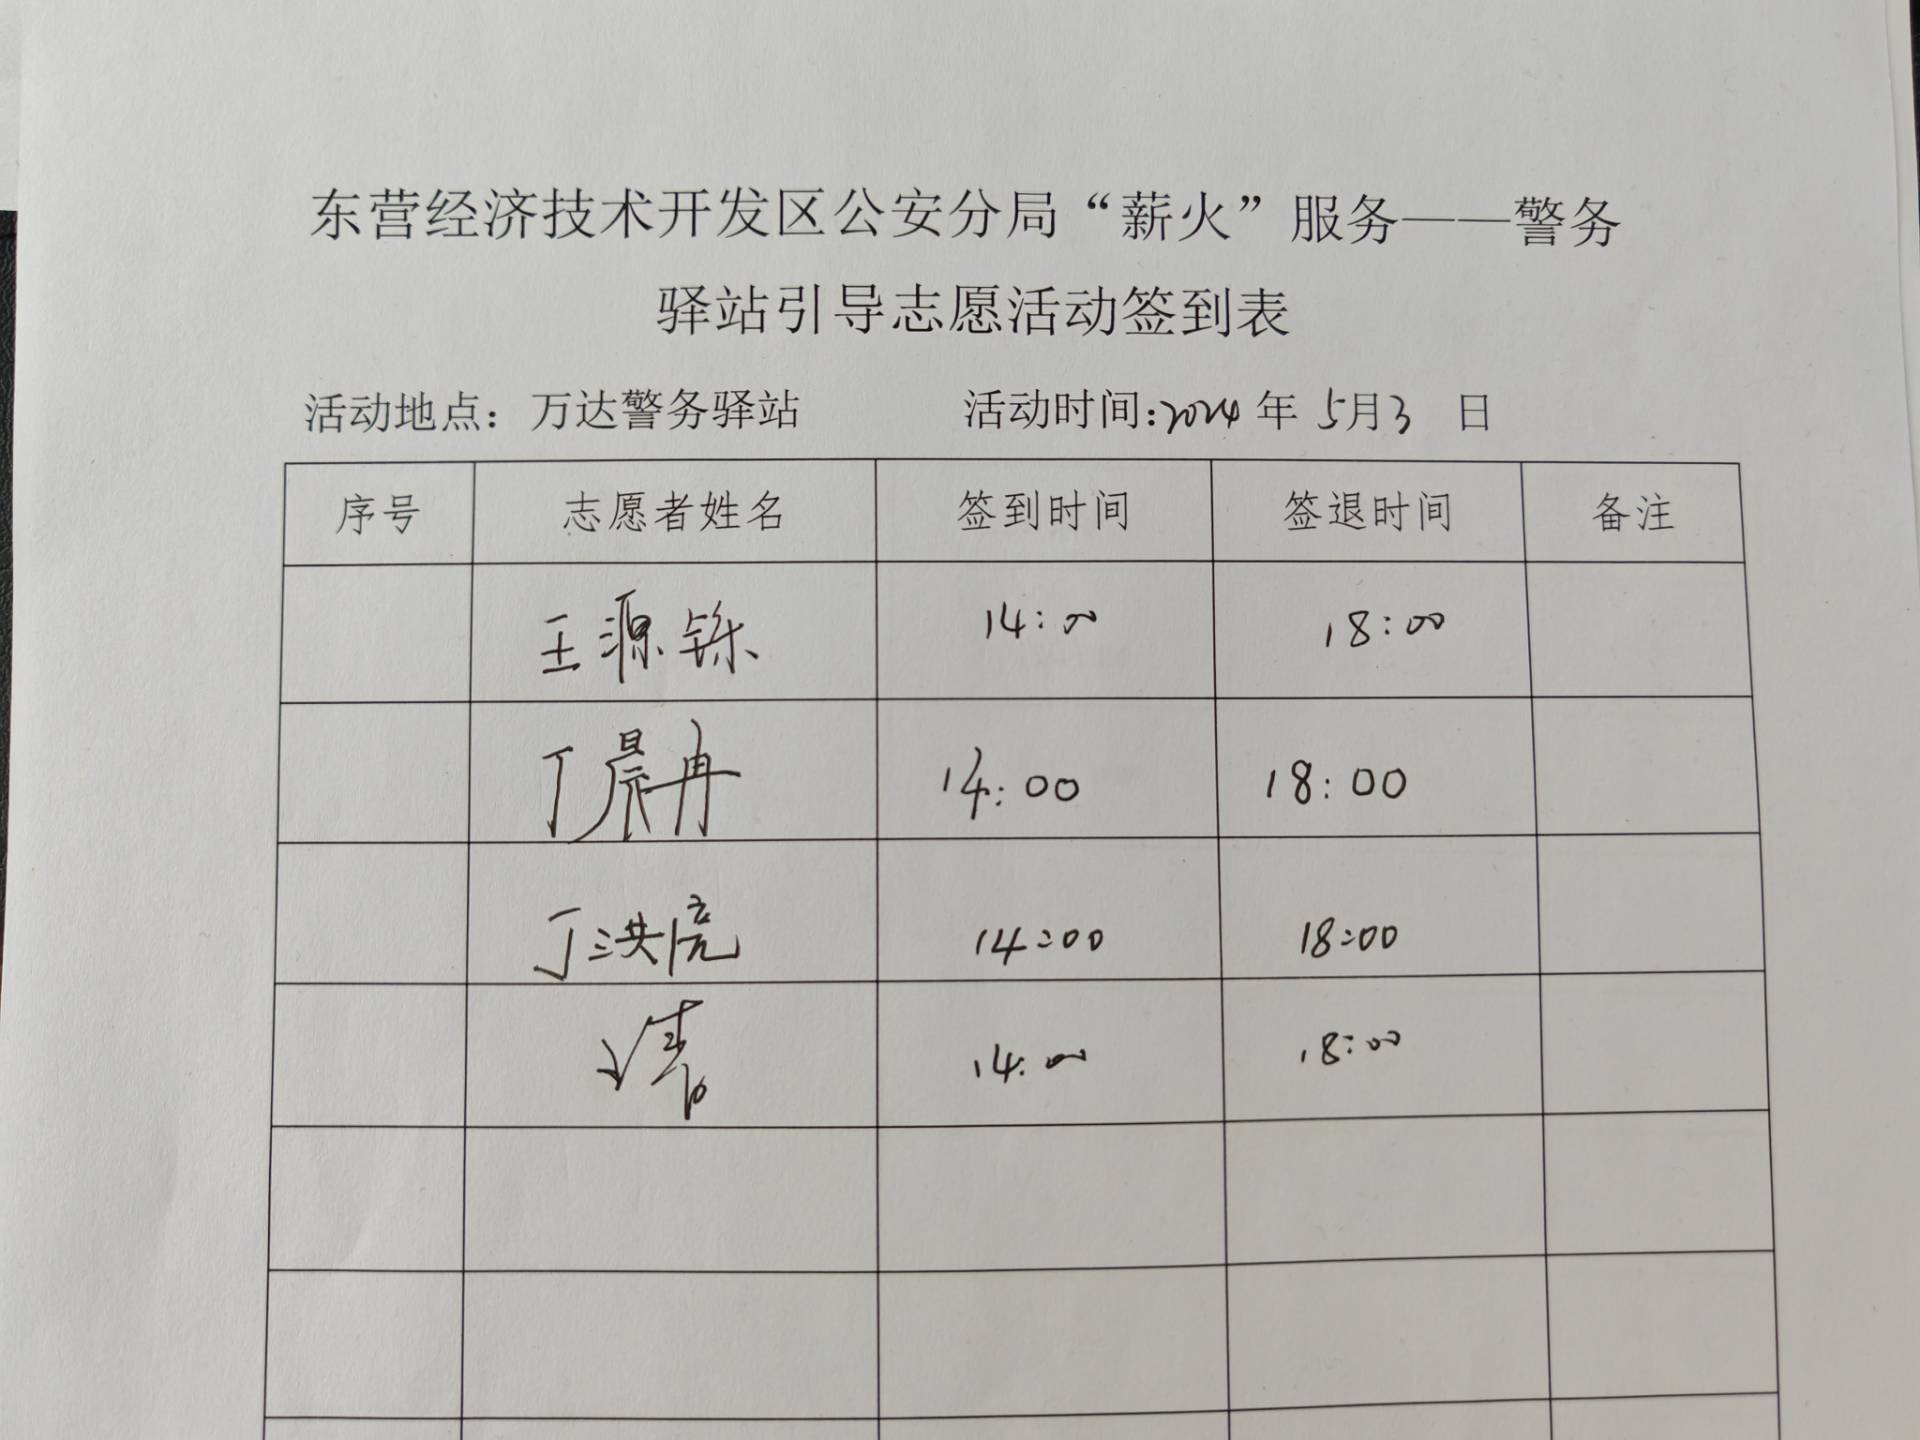 东营经济技术开发区公安分局“薪火”服务——警务
驿站引导志愿活动签到表
活动地点：万达警务驿站 活动时间：2024年5月3日
序号 志愿者姓名 签到时间 签退时间 备注
王源铄 14:00 18:00
丁晨冉 14:00 18:00
丁洪亮 14:00 18:00
14:00 18:00